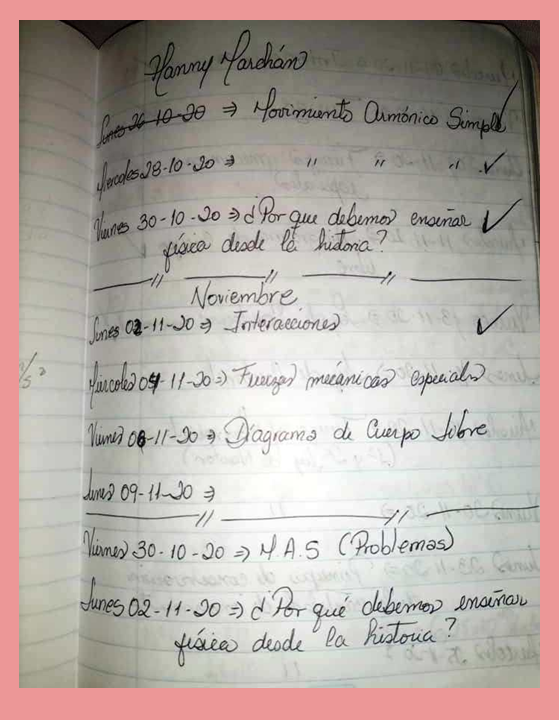 Hanny Marchán
Lunes 26-10-20 ⇒ Movimiento Armónico Simple ✓
Miercoles 28-10-20 ⇒ " " " ✓
Viernes 30-10-20 ⇒ ¿Por que debemos enseñar ✓
física desde la historia?
Noviembre
Lunes 02-11-20 ⇒ Interacciones ✓
Miércoles 04-11-20 ⇒ Fuerzas mecánicas especiales
Viernes 06-11-20 ⇒ Diagrama de Cuerpo libre
Lunes 09-11-20 ⇒
Viernes 30-10-20 ⇒ M.A.S (Problemas)
Lunes 02-11-20 ⇒ ¿Por qué debemos enseñar
física desde la historia?